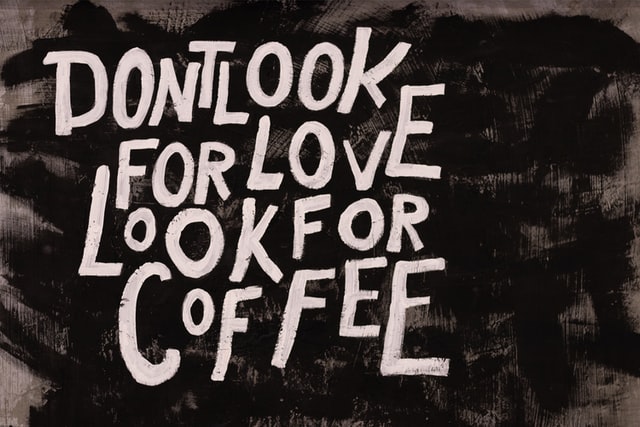 DONT LOOK
FOR LOVE
LOOK FOR
COFFEE